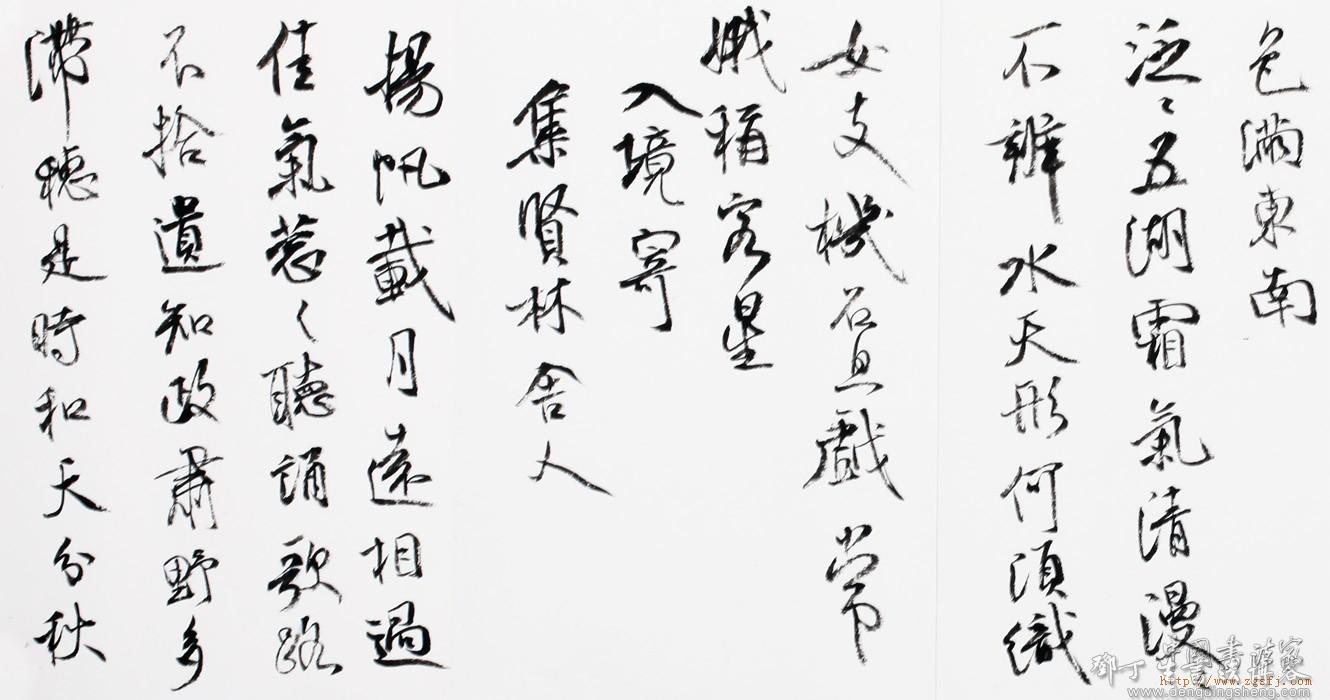 色滿東南
泛〻五湖霜氣清漫〻
不辨水天形何須織
女支機石且戲常
娥稱客星
入境寄
集賢林舍人
揚帆載月遠相過
佳氣葱〻聽誦歌路
不拾遺知政肅野多
滯穗是時和天分秋
www.dengdingsheng.com